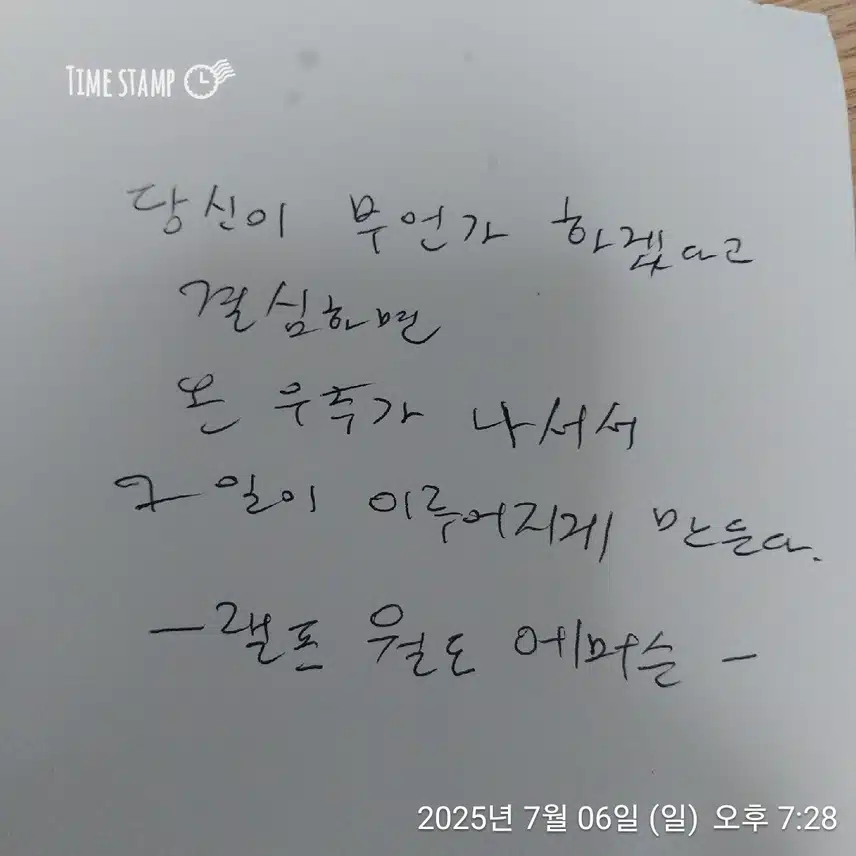 TIME STAMP
당신이 무언가 하겠다고
결심하면
온 우주가 나서서
그 일이 이루어지게 만든다.
- 랠프 월도 에머슨 -
2025년 7월 06일 (일) 오후 7:28